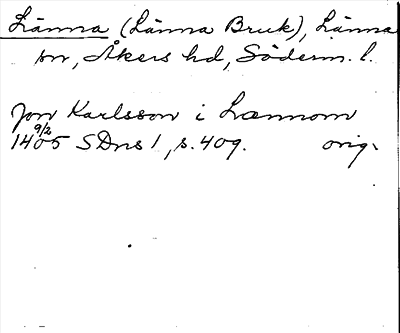 Länna (Länna Bruk), Länna
sn, Åkers hd, Söderm. l.
Jon Karlsson i Lænnom
9/2
1405 SDns 1, s. 409. orig.